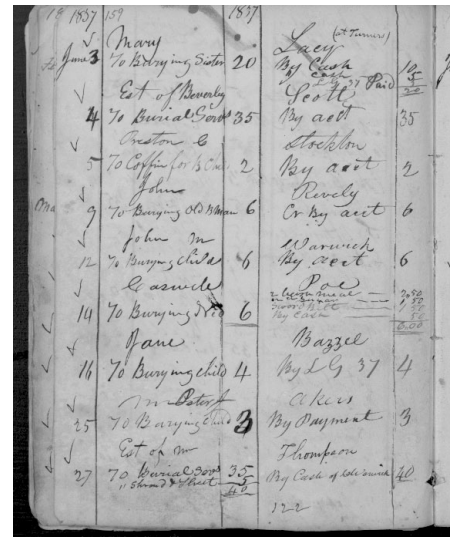 1837 159 1837
Mary Lacy (at Turners)
June 3 To Burying Sister 20 By Cash 10
cash 5
L G 37 Paid 20
Est of Beverly Scott
4 To Burial Servt 35 By acct 35
Preston C Stockton
5 To Coffin for B Child 2 By acct 2
John Rively
9 To Burying Old Woman 6 Cr By acct 6
John M Warwick
12 To Burying child 6 By acct 6
Poe
14 To Burying 6
By Cash 50
6.00
Jane Bazzel
16 To Burying child 4 By L G 37 4
Akers
25 To Burying Child 3 By Payment 3
Est of Thompson
27 To Burial Serv 35 By Cash of 40
" Shroud & Sheet 5
40
122